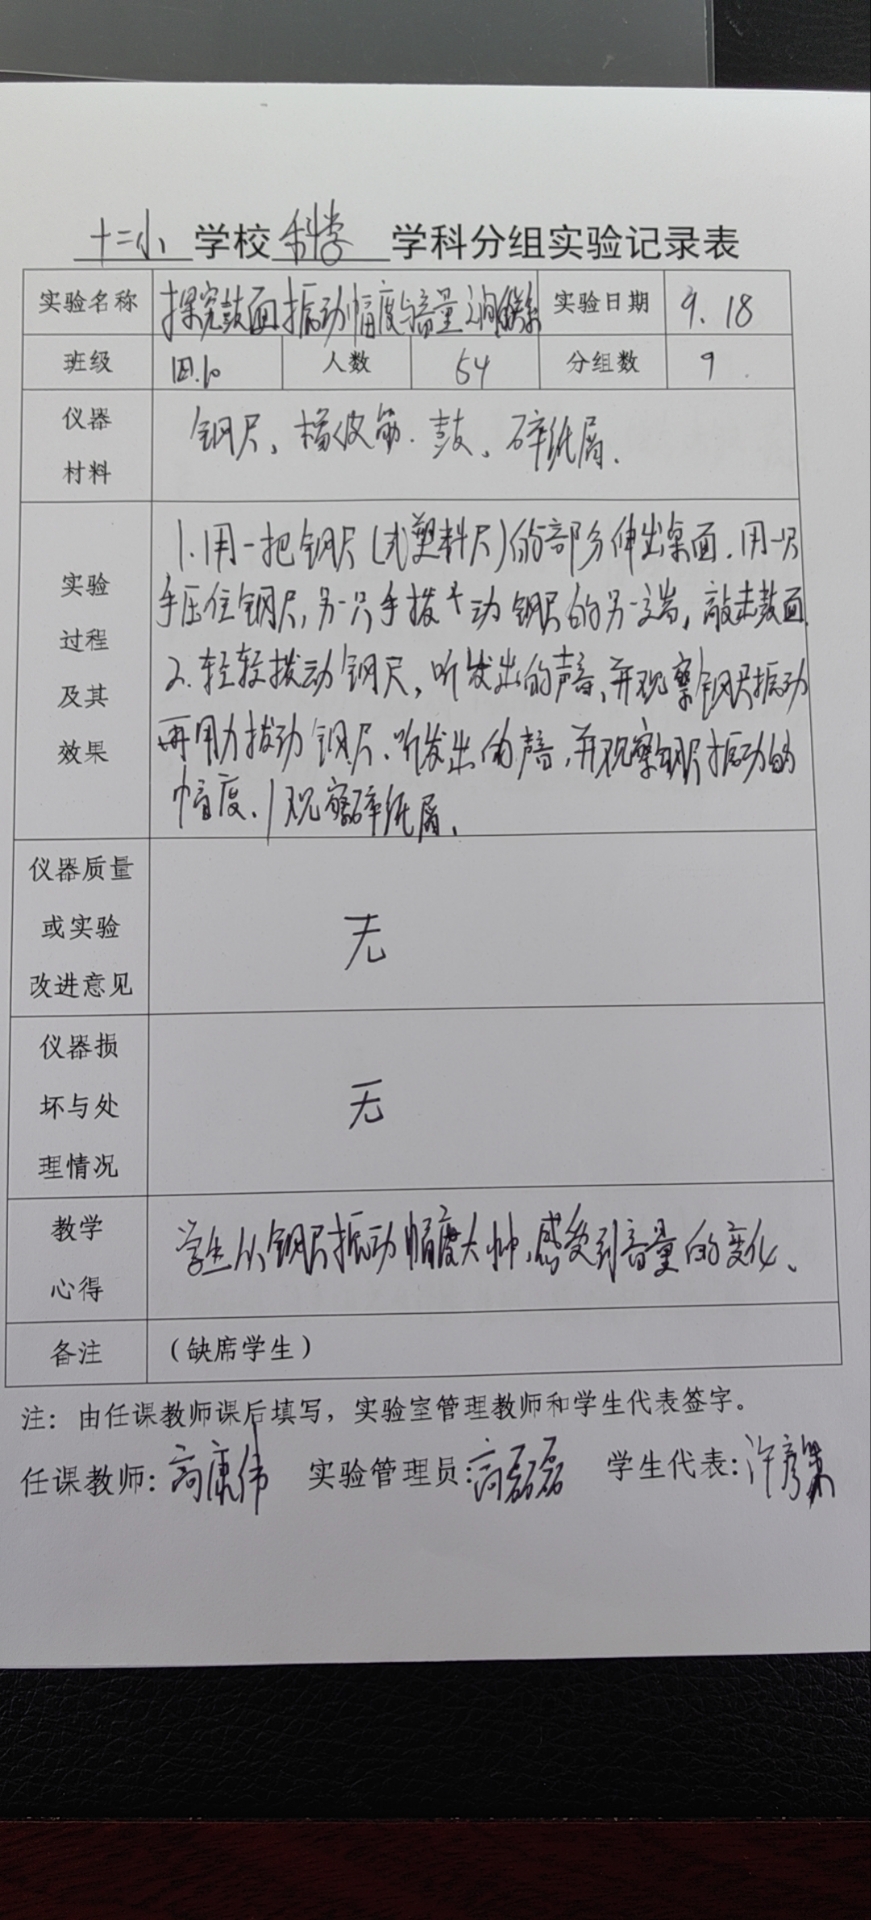 十二小 学校 科学 学科分组实验记录表
实验名称 探究鼓面振动幅度与音量之间的联系 实验日期 9.18
班级 四.10 人数 54 分组数 9
仪器
材料
钢尺、橡皮筋.鼓、碎纸屑.
实验
过程
及其
效果
1.用一把钢尺(或塑料尺)的部分伸出桌面.用一只
手压住钢尺,另一只手拨动钢尺的另一端,敲击鼓面.
2.轻轻拨动钢尺,听发出的声音,并观察钢尺振动
再用力拨动钢尺.听发出的声音,并观察钢尺振动的
幅度.观察碎纸屑.
仪器质量
或实验
改进意见
无
仪器损
坏与处
理情况
无
教学
心得
学生从钢尺振动幅度大小,感受到音量的变化、
备注 (缺席学生)
注:由任课教师课后填写,实验室管理教师和学生代表签字。
任课教师:高康伟 实验管理员:高磊磊 学生代表:许彦